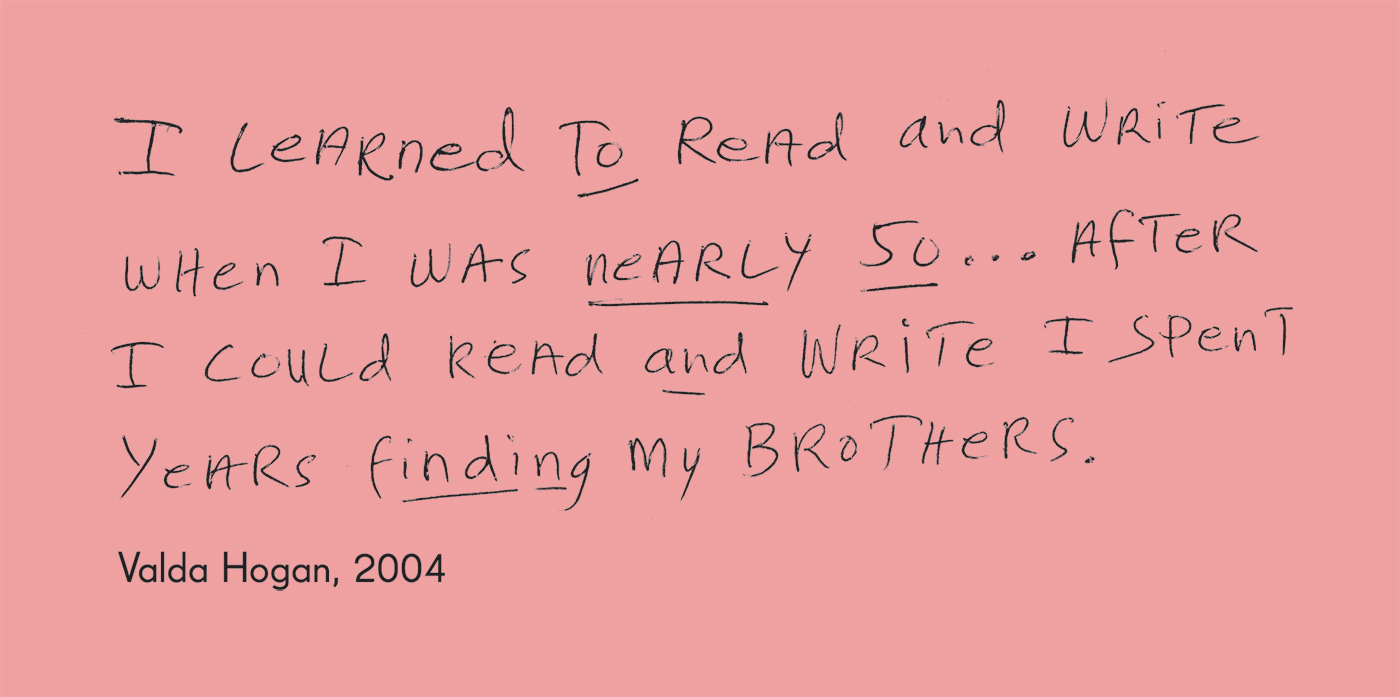 I LeARned To ReAd and WRiTe
WHen I WAS neARLY 50... AfTeR
I COULd ReAd and WRiTe I SPenT
YeARS finding My BRoTHeRS.
Valda Hogan, 2004